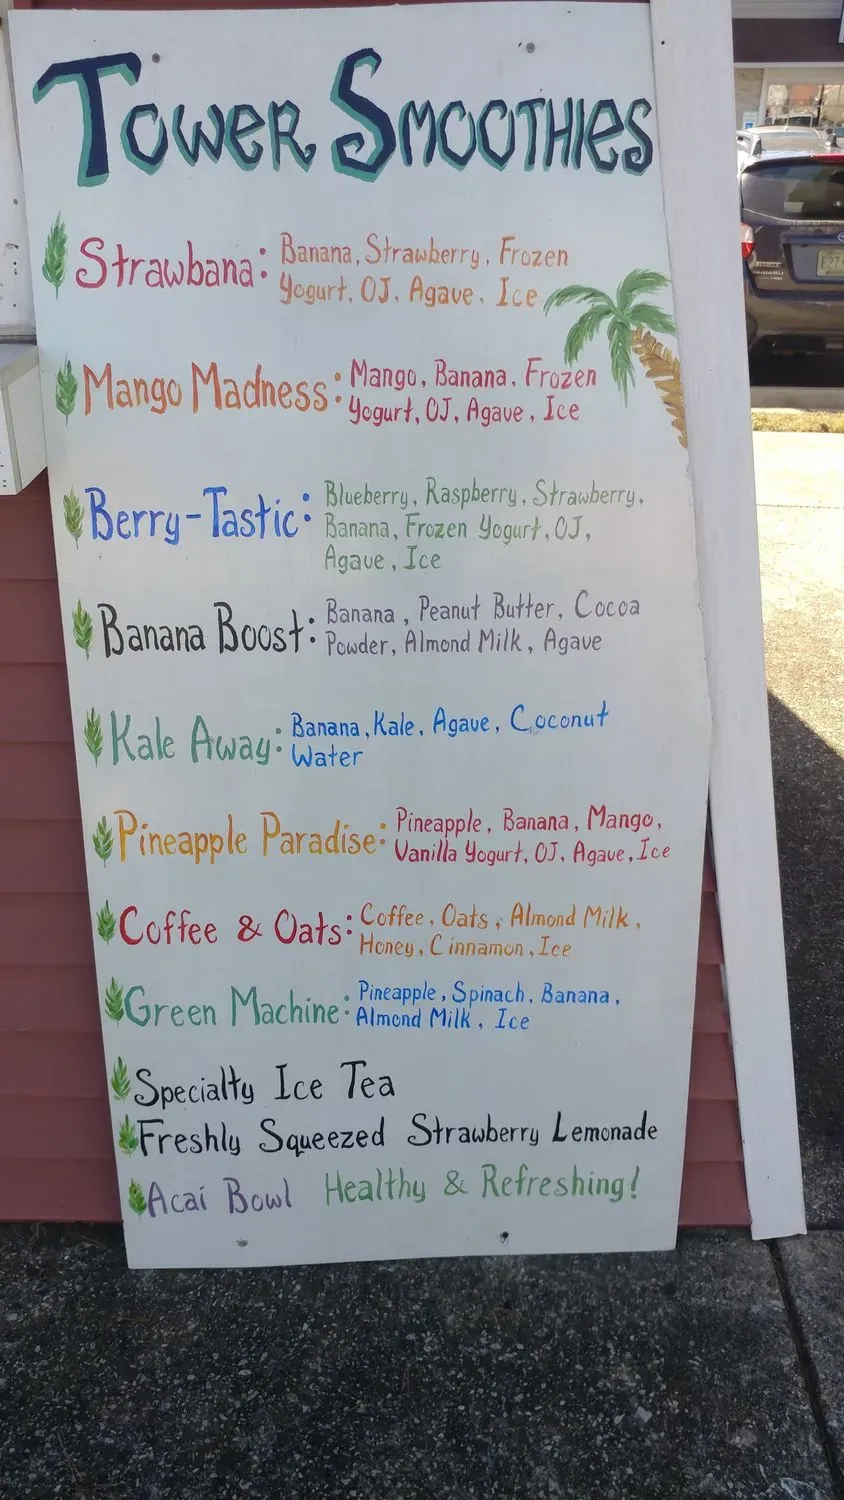 Tower Smoothies
Strawbana: Banana, Strawberry, Frozen
Yogurt, OJ, Agave, Ice
Mango Madness: Mango, Banana, Frozen
Yogurt, OJ, Agave, Ice
Berry-Tastic: Blueberry, Raspberry, Strawberry,
Banana, Frozen Yogurt, OJ,
Agave, Ice
Banana Boost: Banana, Peanut Butter, Cocoa
Powder, Almond Milk, Agave
Kale Away: Banana, Kale, Agave, Coconut
Water
Pineapple Paradise: Pineapple, Banana, Mango,
Vanilla Yogurt, OJ, Agave, Ice
Coffee & Oats: Coffee, Oats, Almond Milk,
Honey, Cinnamon, Ice
Green Machine: Pineapple, Spinach, Banana,
Almond Milk, Ice
Specialty Ice Tea
Freshly Squeezed Strawberry Lemonade
Acaí Bowl Healthy & Refreshing!
SUBARU